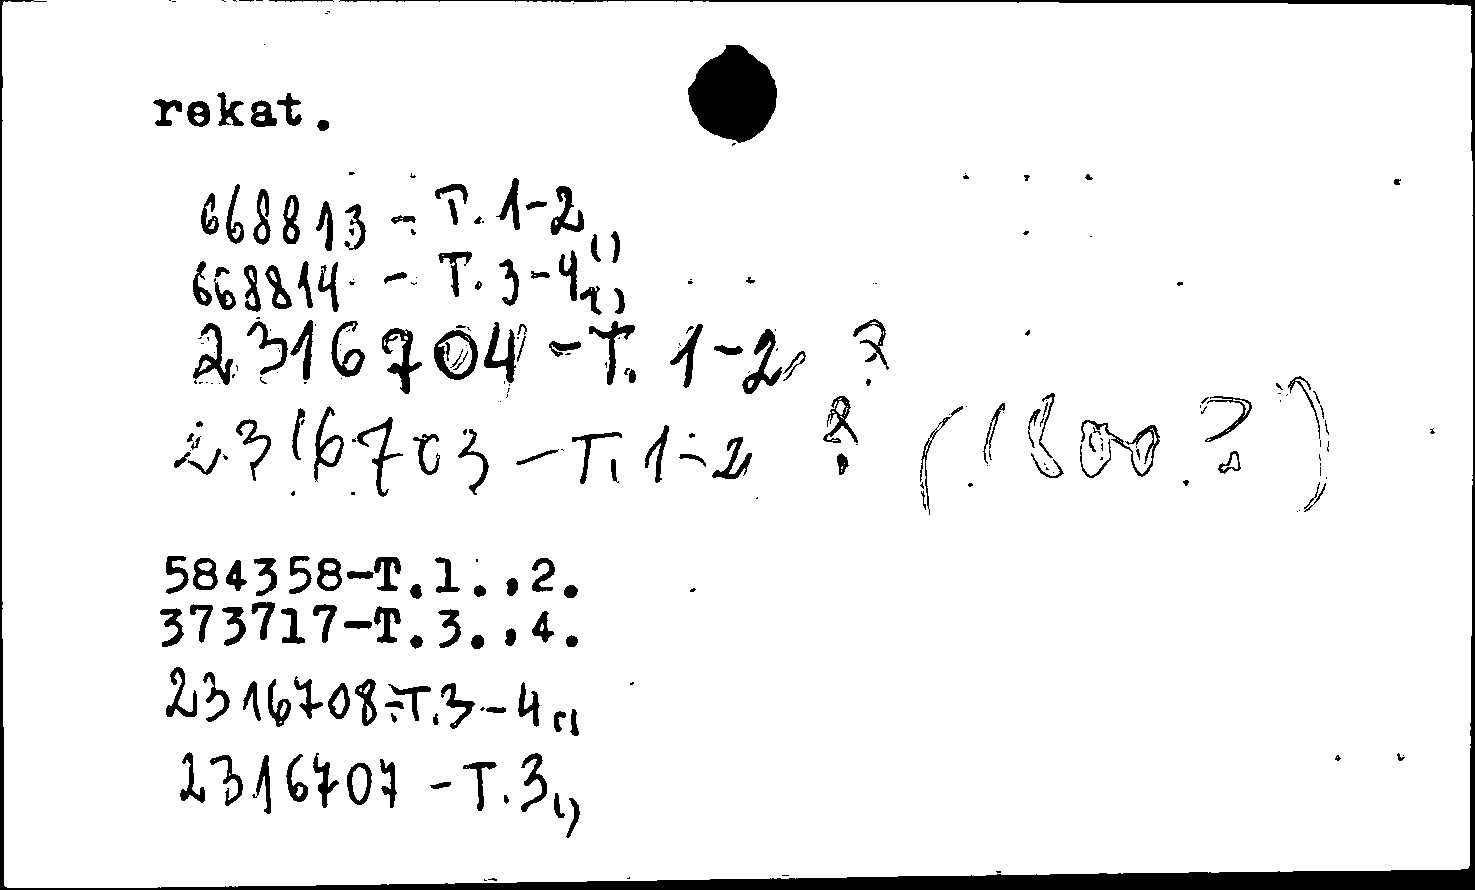 rekat.
668813 - T. 1-2
668814 - T. 3-4
2316704 - T. 1-2 ?
2316703 - T. 1-2 ? (1800?)
584358-T.1.,2.
373717-T.3.,4.
2316708-T.3-4
2316707 - T.3